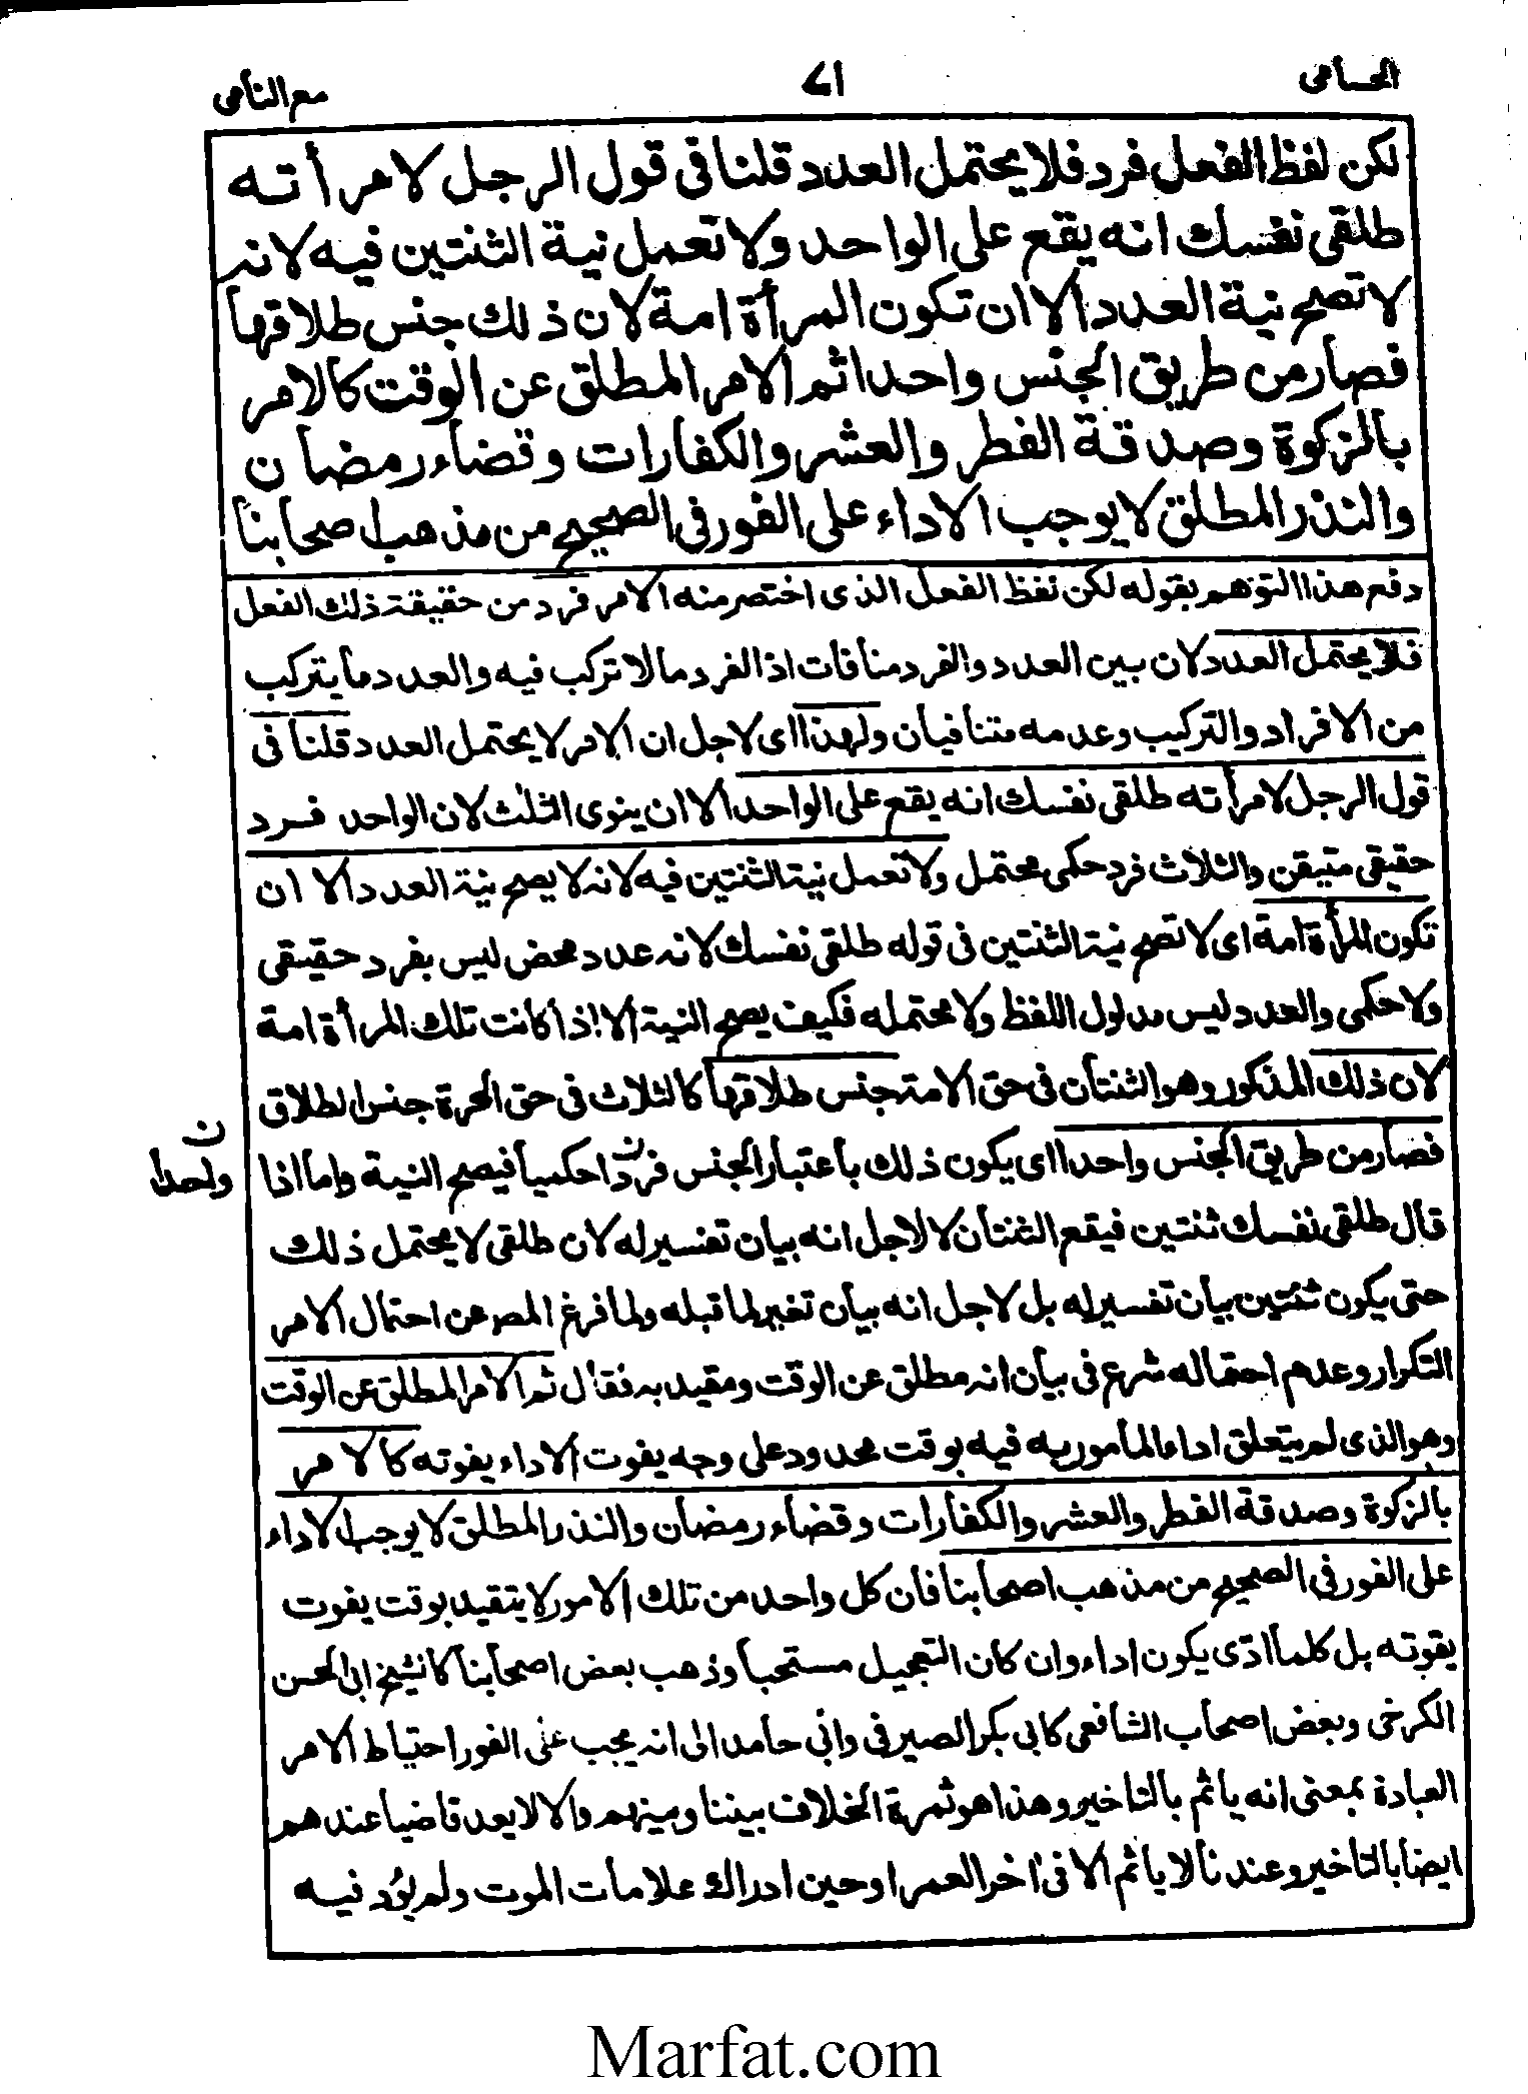 الحسامى
٧١
مع النامى
لكن لفظ الفعل فرد فلا يحتمل العدد قلنا فى قول الرجل لامرأته
طلقى نفسك انه يقع على الواحد ولا تعمل نية الثنتين فيه لانه
لا تصح نية العدد الا ان تكون المرأة امة لان ذلك جنس طلاقها
فصار من طريق الجنس واحدا ثم الامر المطلق عن الوقت كالامر
بالزكوة وصدقة الفطر والعشر والكفارات وقضاء رمضان
والنذر المطلق لا يوجب الاداء على الفور فى الصحيح من مذهب اصحابنا
دفع هذا التوهم بقوله لكن لفظ الفعل الذى اختصر منه الامر فرد من حقيقة ذلك الفعل
فلا يحتمل العدد لان بين العدد والفرد منافات اذ الفرد ما لا تركب فيه والعدد ما يتركب
من الافراد والتركيب وعدمه متنافيان ولهذا اى لاجل ان الامر لا يحتمل العدد قلنا فى
قول الرجل لامرأته طلقى نفسك انه يقع على الواحد الا ان ينوى الثلث لان الواحد فرد
حقيقى متيقن والثلاث فرد حكمى محتمل ولا تعمل نية الثنتين فيه لانه لا يصح نية العدد الا ان
تكون المرأة امة اى لا تصح نية الثنتين فى قوله طلقى نفسك لانه عدد محض ليس بفرد حقيقى
ولا حكمى والعدد ليس مدلول اللفظ ولا محتمله فكيف يصح النية الا اذا كانت تلك المرأة امة
لان ذلك المذكور وهو الثنتان فى حق الامة جنس طلاقها كالثلاث فى حق الحرة جنس الطلاق
فصار من طريق الجنس واحدا اى يكون ذلك باعتبار الجنس فردا حكميا فيصح النية واما اذا
ن
واحدا
قال طلقى نفسك ثنتين فيقع الثنتان لا لاجل انه بيان تفسير له لان طلقى لا يحتمل ذلك
حتى يكون ثنتين بيان تفسير له بل لاجل انه بيان تغير لما قبله ولما فرغ المصر عن احتمال الامر
التكرار وعدم احتماله شرع فى بيان انه مطلق عن الوقت ومقيد به فقال ثم الامر المطلق عن الوقت
وهو الذى لم يتعلق اداء المأمور به فيه بوقت محدود على وجه يفوت الاداء بفوته كالامر
بالزكوة وصدقة الفطر والعشر والكفارات وقضاء رمضان والنذر المطلق لا يوجب الاداء
على الفور فى الصحيح من مذهب اصحابنا فان كل واحد من تلك الامور لا يتقيد بوقت يفوت
بفوته بل كلما ادى يكون اداء وان كان التعجيل مستحبا وذهب بعض اصحابنا كالشيخ ابى الحسن
الكرخى وبعض اصحاب الشافعى كابى بكر الصيرفى وابى حامد الى انه يجب على الفور احتياط الامر
العبادة بمعنى انه ياثم بالتاخير وهذا هو ثمرة الخلاف بيننا وبينهم والا لا يعد قاضيا عندهم
ايضا بالتاخير وعندنا لا ياثم الا فى اخر العمر او حين ادراك علامات الموت ولم يؤد فيه
Marfat.com